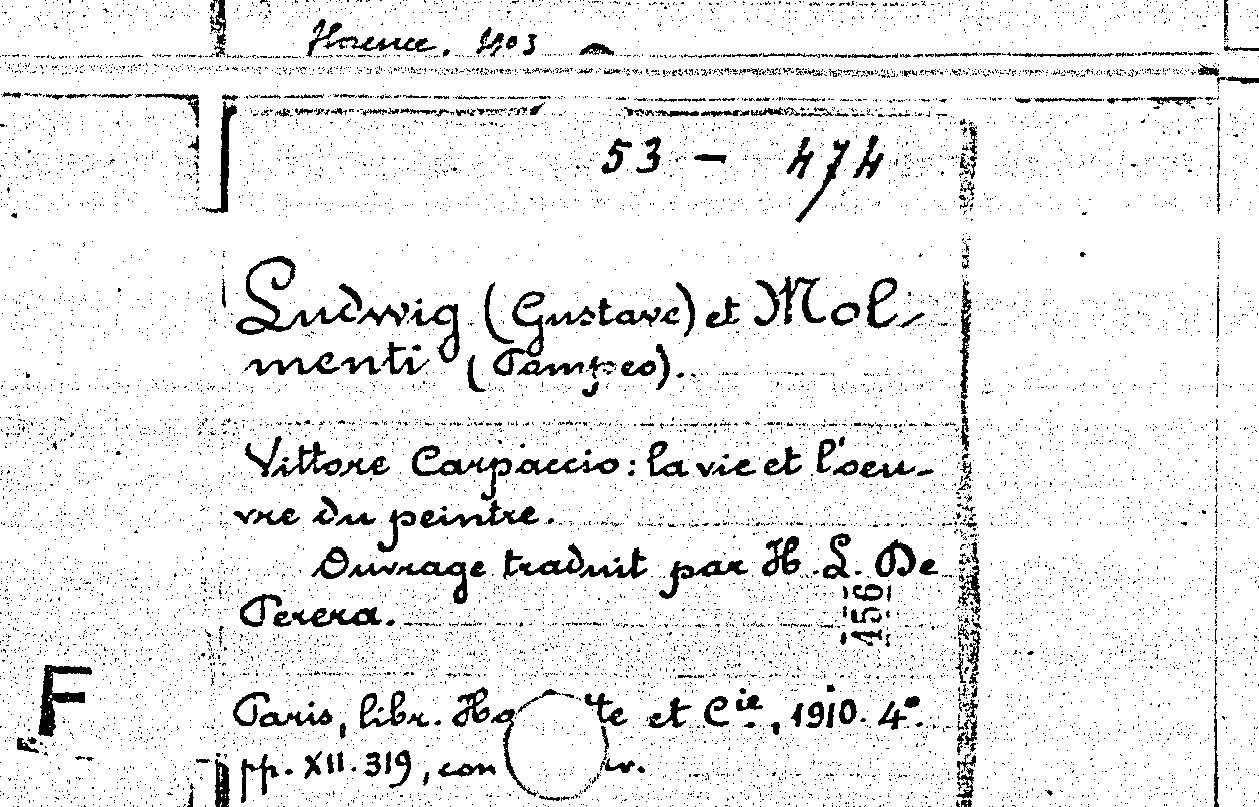 Florence. 1903
53 – 474
Ludwig (Gustave) et Mol-
menti (Pompeo).
Vittore Carpaccio: la vie et l'oeu-
vre du peintre.
Ouvrage traduit par H. L. De
Perera.
456
F
Paris, libr. Ha te et Cie, 1910. 4°.
pp. XII. 319, con